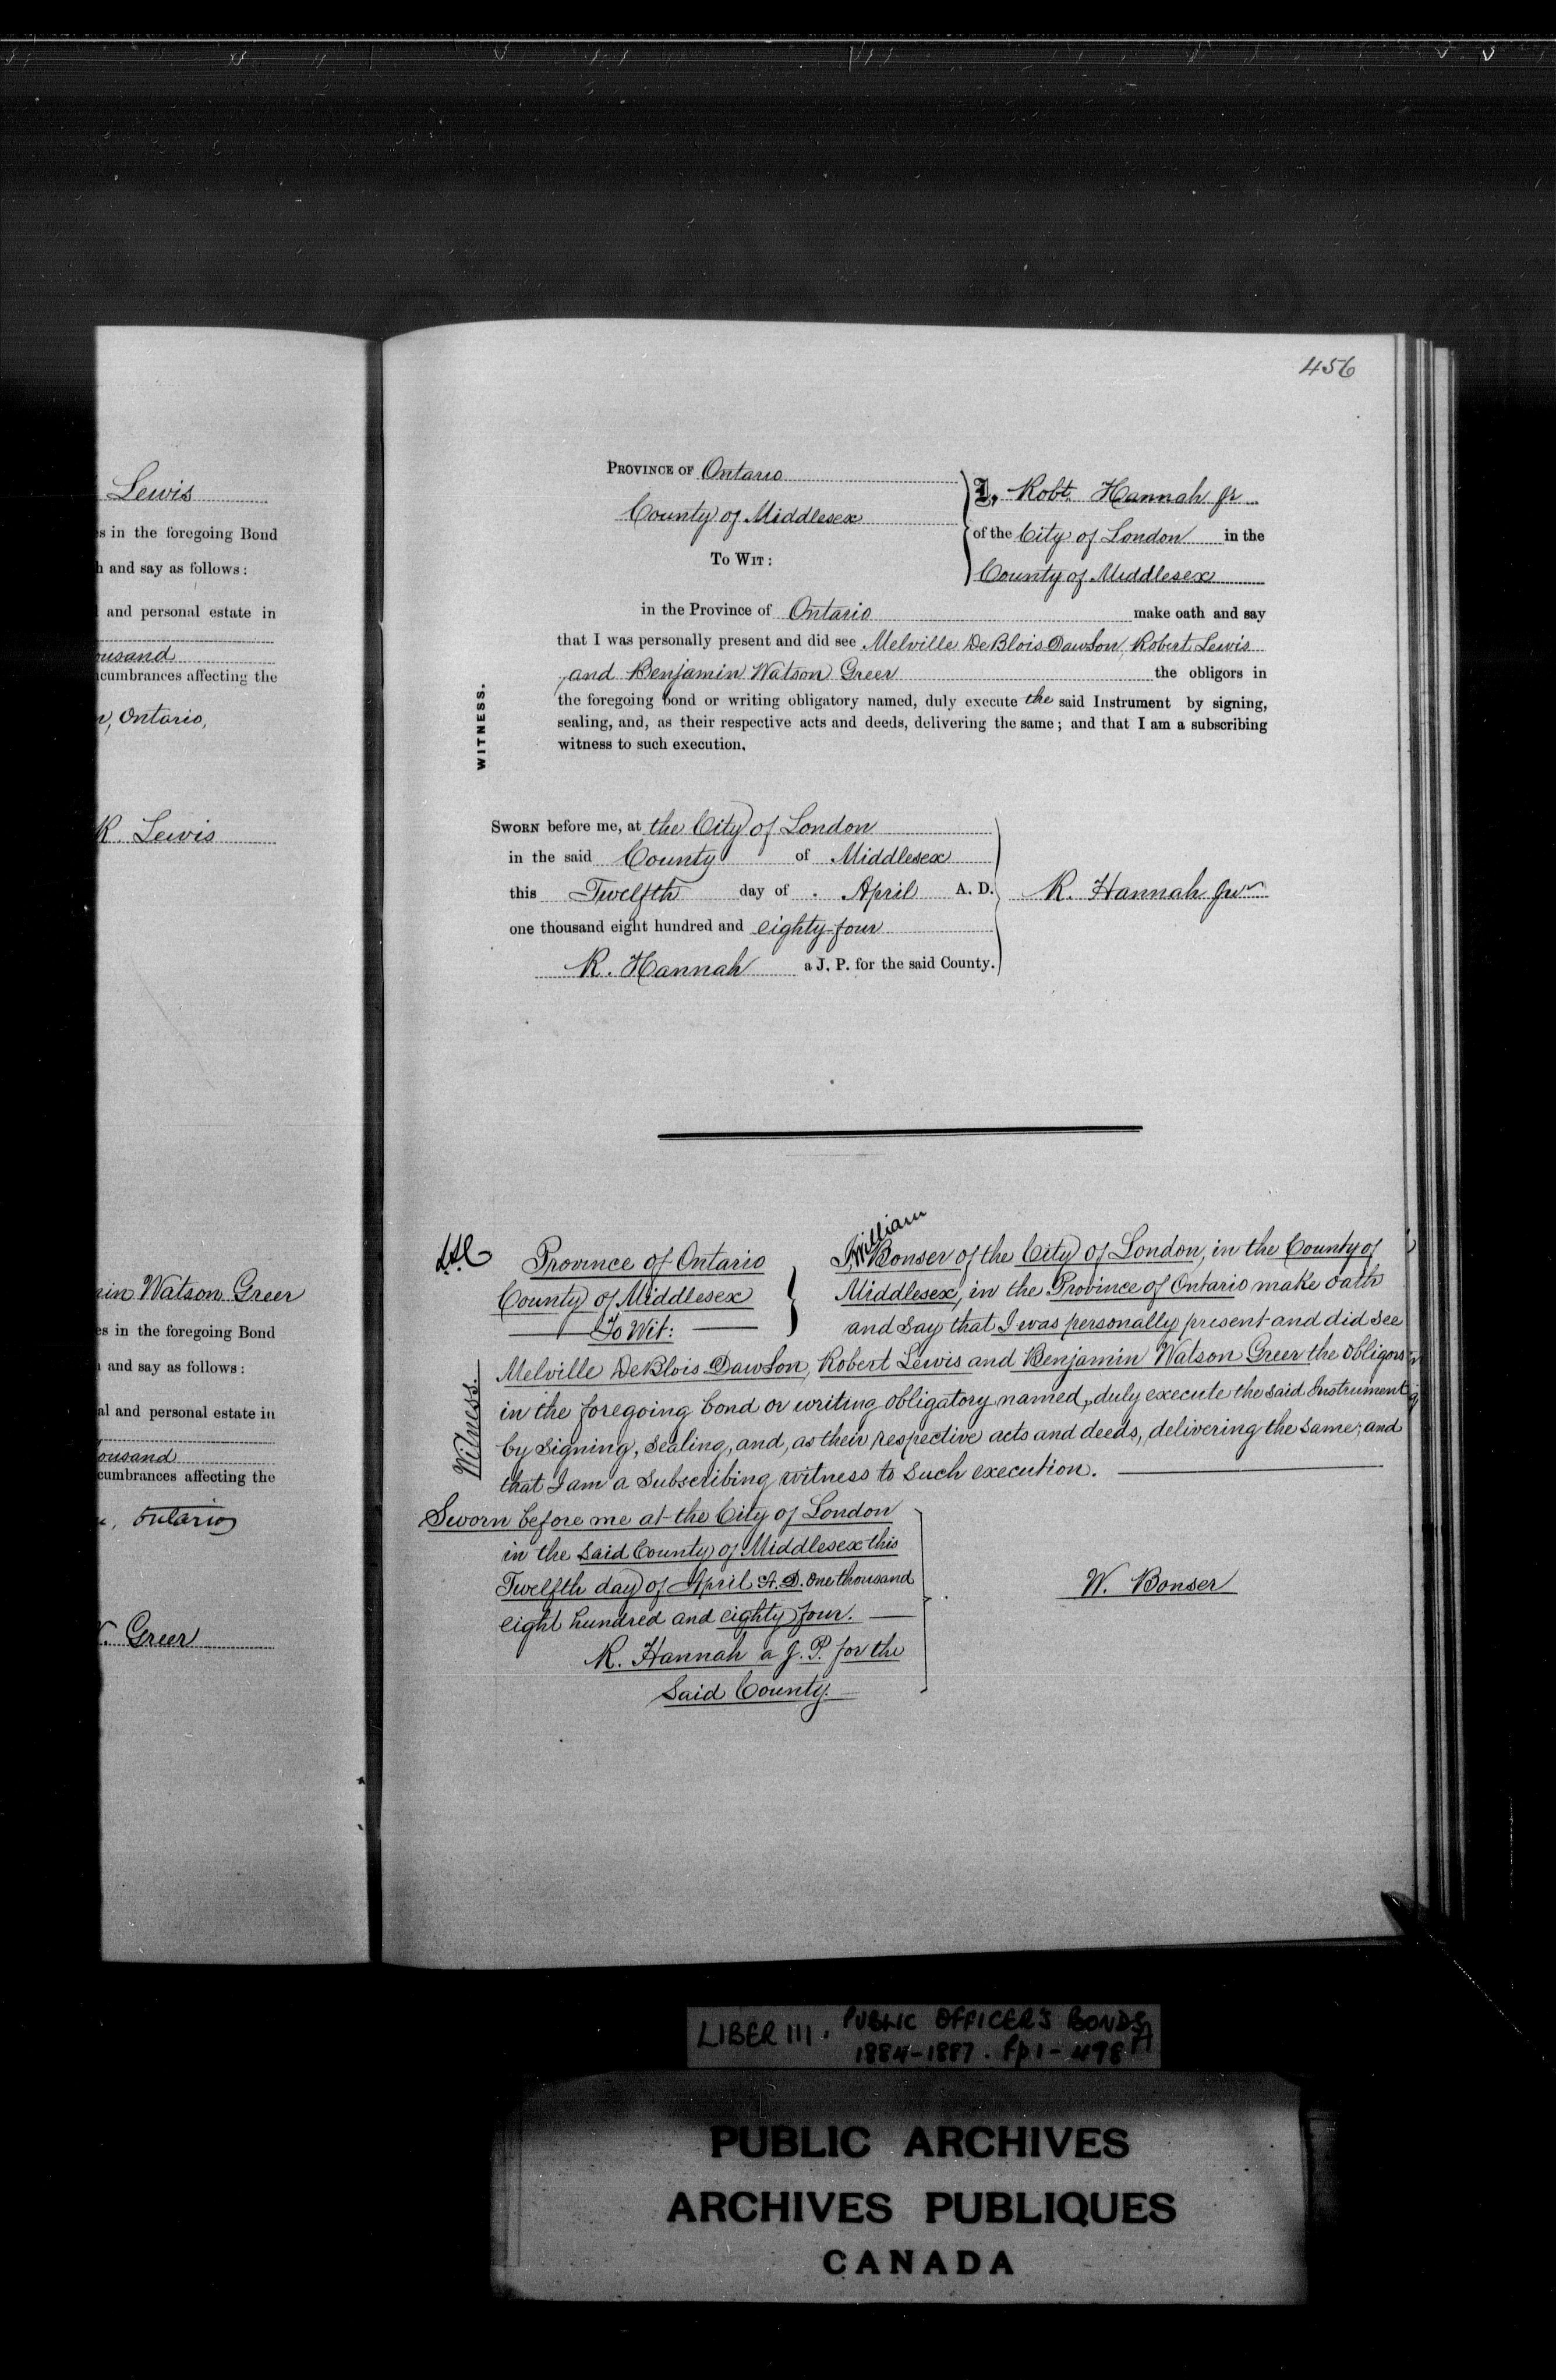 Lewis
s in the foregoing Bond
h and say as follows:
and personal estate in
ousand
cumbrances affecting the
n, Ontario,
R. Lewis
min Watson Greer
es in the foregoing Bond
and say as follows:
al and personal estate in
ousand
cumbrances affecting the
Ontario
W. Greer
456
PROVINCE OF Ontario
County of Middlesex
TO WIT:
I, Robt. Hannah jr
of the City of London in the
County of Middlesex
in the Province of Ontario make oath and say
that I was personally present and did see Melville DeBlois Dawson, Robert Lewis
and Benjamin Watson Greer the obligors in
the foregoing bond or writing obligatory named, duly execute the said Instrument by signing,
sealing, and, as their respective acts and deeds, delivering the same; and that I am a subscribing
witness to such execution.
WITNESS.
SWORN before me, at the City of London
in the said County of Middlesex
this Twelfth day of April A. D.
one thousand eight hundred and eighty-four
R. Hannah a J. P. for the said County.
R. Hannah Junr
Province of Ontario
County of Middlesex
To Wit:
I, William Bonser of the City of London, in the County of
Middlesex, in the Province of Ontario make oath
and say that I was personally present and did see
Melville DeBlois Dawson, Robert Lewis and Benjamin Watson Greer the obligors
in the foregoing bond or writing obligatory named, duly execute the said Instrument
by signing, sealing, and, as their respective acts and deeds, delivering the same; and
that I am a subscribing witness to such execution.
Witness.
Sworn before me at the City of London
in the said County of Middlesex this
Twelfth day of April A.D. one thousand
eight hundred and eighty four.
R. Hannah a J. P. for the
said County.
W. Bonser
LIBER 111. PUBLIC OFFICER'S BONDS
1884-1887. fp 1-498
PUBLIC ARCHIVES
ARCHIVES PUBLIQUES
CANADA